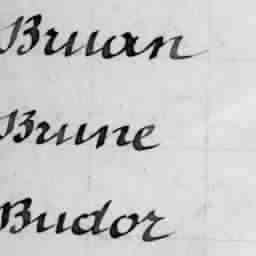 Bruan
Brune
Budor